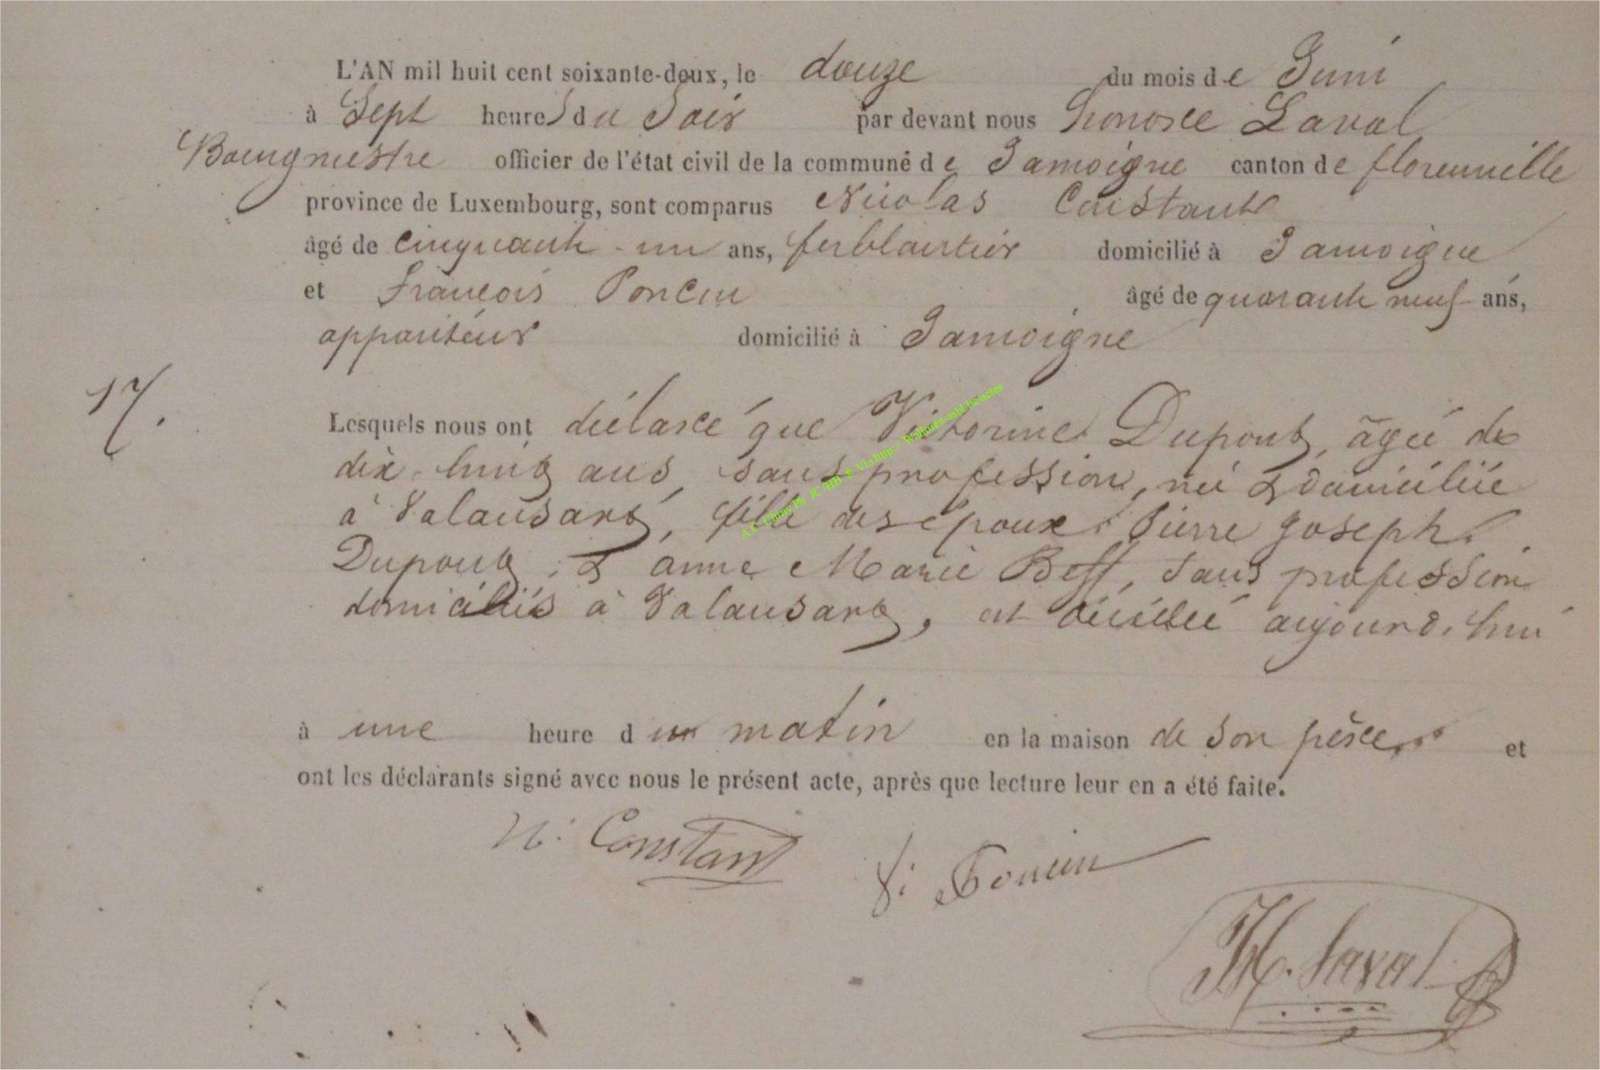 L'AN mil huit cent soixante-deux, le douze du mois de Juin
à Sept heures du Soir par devant nous honoré Laval
Bourgmestre officier de l'état civil de la commune de Jamoigne canton de florenville
province de Luxembourg, sont comparus Nicolas Constant
âgé de cinquante-un ans, ferblantier domicilié à Jamoigne
et François Poncin âgé de quarante neuf ans,
appariteur domicilié à Jamoigne
17.
Lesquels nous ont déclaré que Victorine Dupont, âgée de
dix-huit ans, sans profession, née & domiciliée
à Valansart, fille des époux Pierre Joseph
Dupont, & anne Marie Boff, sans profession
domiciliés à Valansart, est décédée aujourd'hui
à une heure du matin en la maison de son père et
ont les déclarants signé avec nous le présent acte, après que lecture leur en a été faite.
N. Constant
f. Poncin
H. Laval